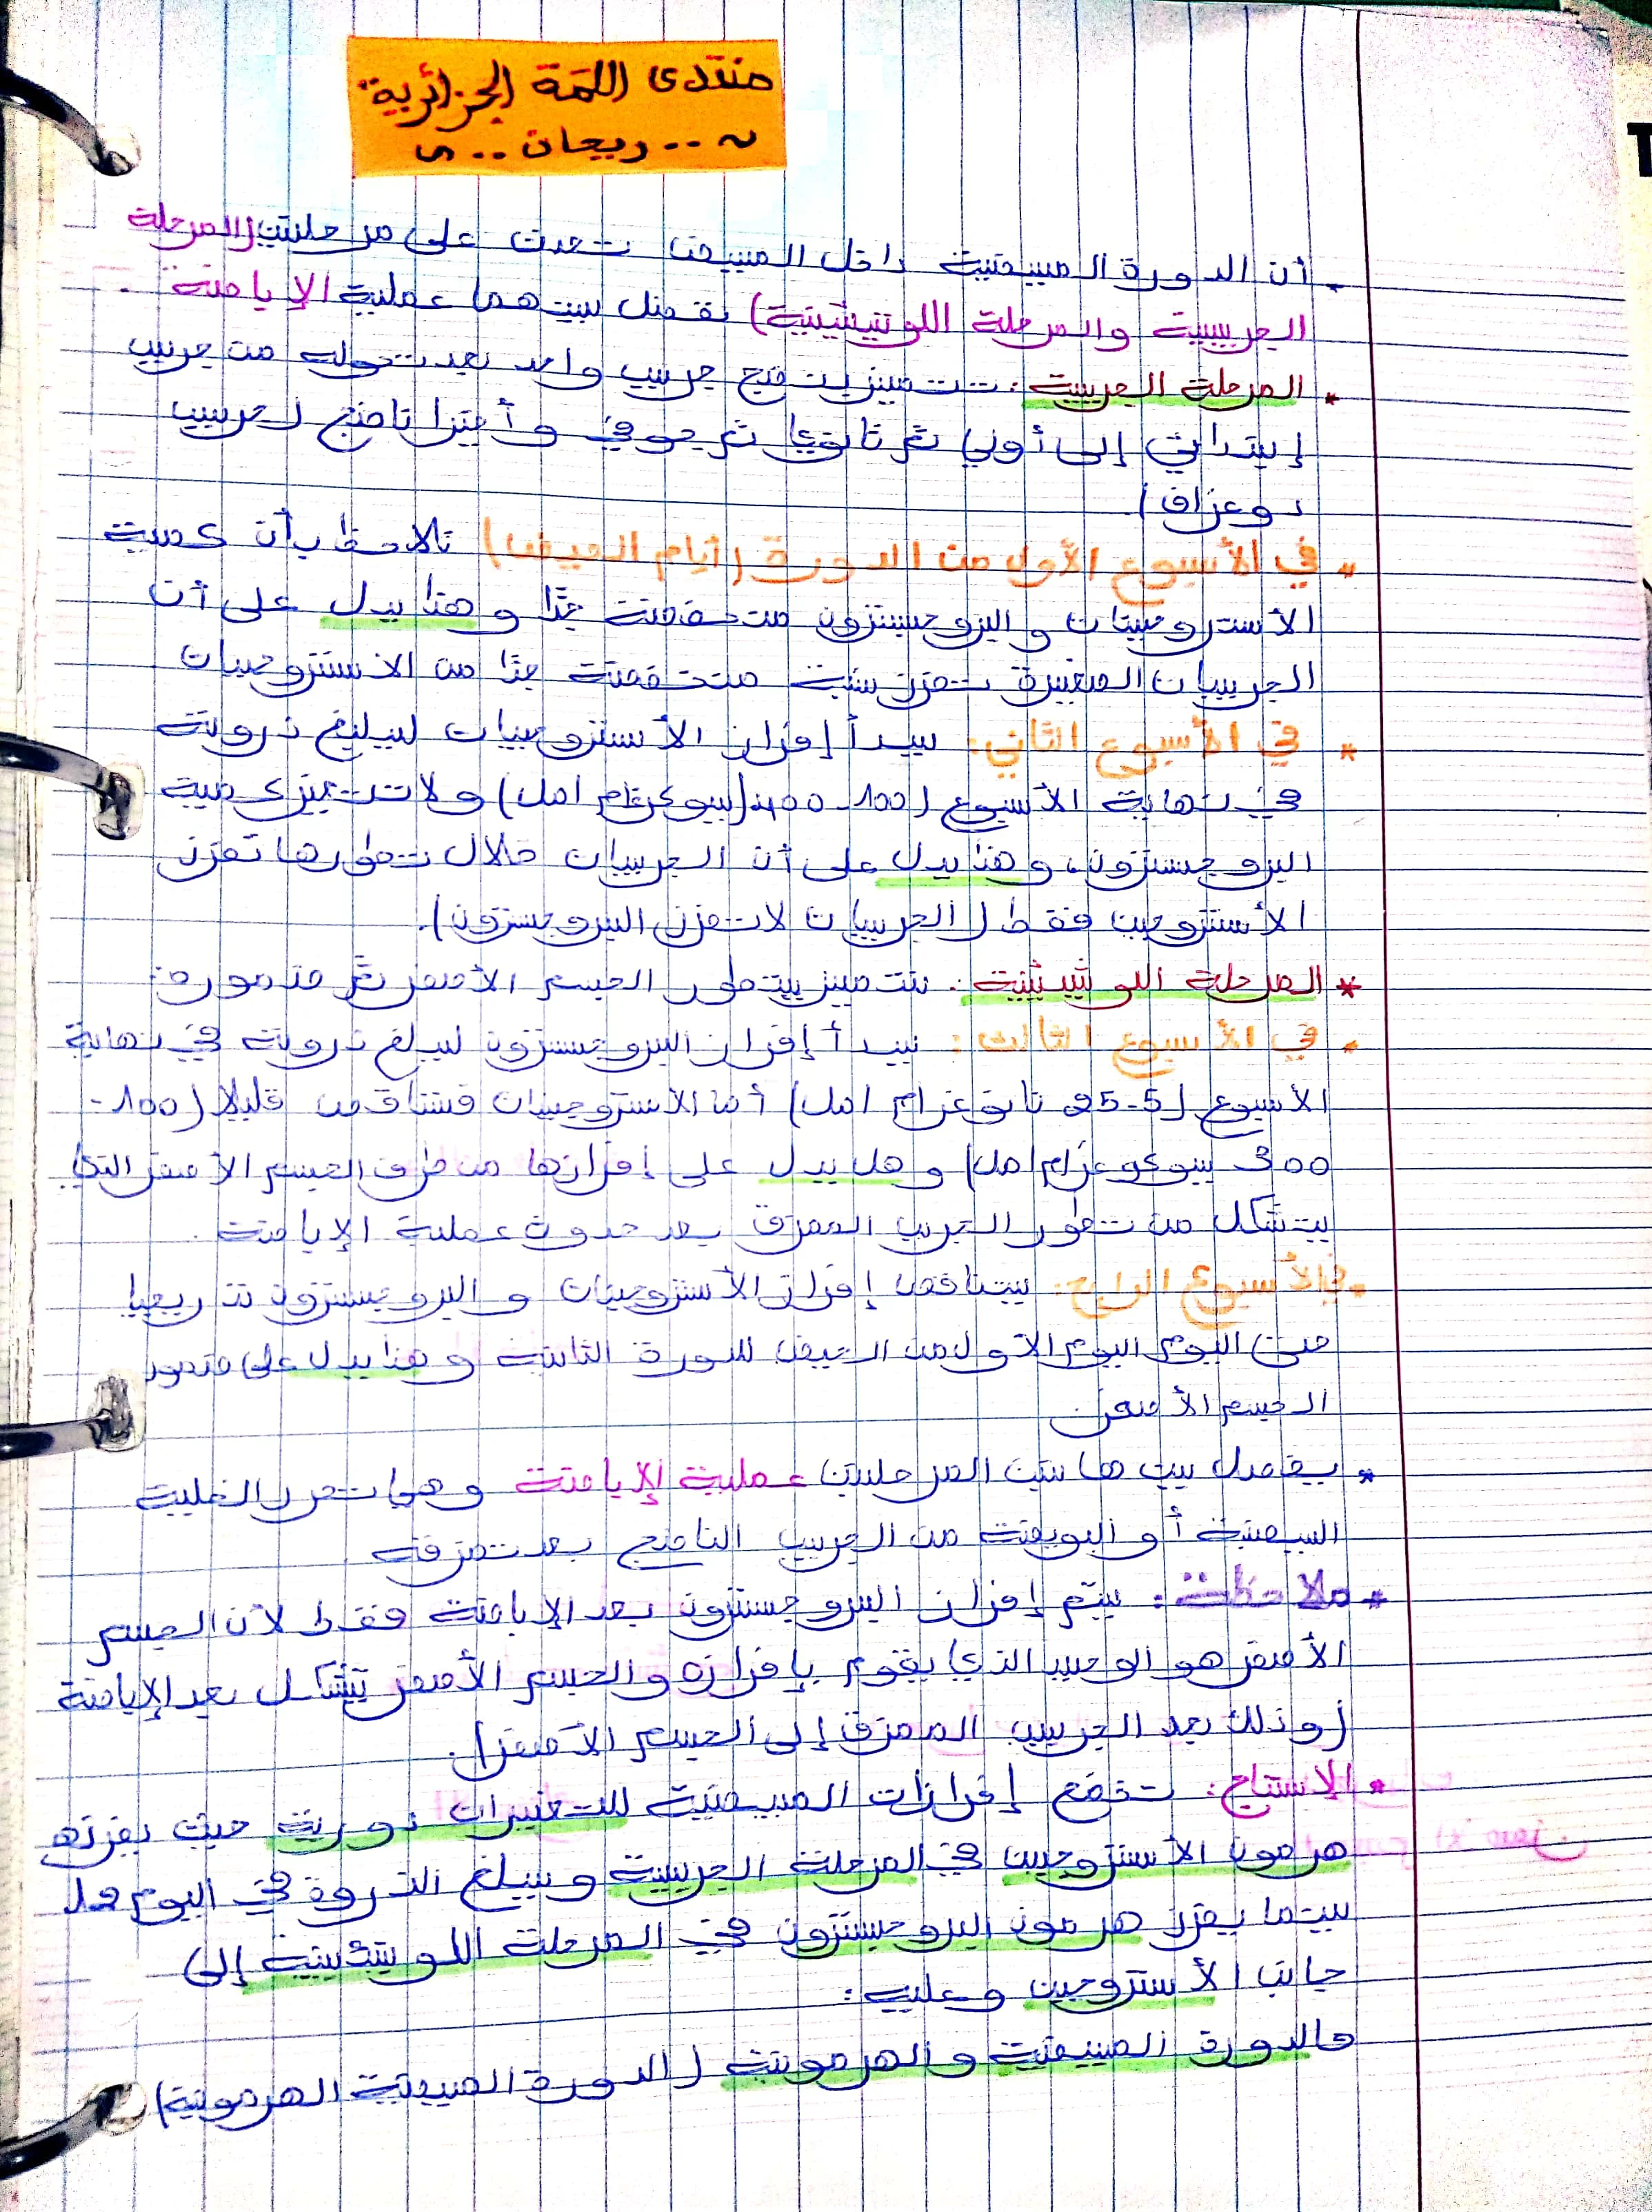 منتدى اللمة الجزائرية
~..ريحان..~
. أن الدورة المبيضية داخل المبيض تحدث على مرحلتين (المرحلة
الجريبية والمرحلة اللوتيئينية) تفصل بينهما عملية الإباضة .
* المرحلة الجريبية: تتميز بنضج جريب واحد بعد تحوله من جريب
إبتدائي إلى أولي ثم ثانوي ثم جوفي وأخيرا ناضج (جريب
دوغراف).
* في الأسبوع الأول من الدورة (أيام الحيض) نلاحظ بأن كمية
الأستروجينات والبروجسترون منخفضة جدّا وهذا يدل على أن
الجريبات الصغيرة تفرز نسبة منخفضة جدّا من الاستروجينات
* في الأسبوع الثاني: يبدأ إفراز الأستروجينات ليبلغ ذروته
في نهاية الأسبوع (100-400 بيوكوغرام/مل) ولا تتميز كمية
البروجسترون، وهذا يدل على أن الجريبات خلال تطورها تفرز
الأستروجين فقط (الجريبات لا تفرز البروجسترون).
* المرحلة اللوتيئينية: تتميز بتطور الجسم الأصفر ثم ضموره:
* في الأسبوع الثالث: يبدأ إفراز البروجسترون ليبلغ ذروته في نهاية
الأسبوع (5-25 نانوغرام/مل) أما الأستروجينات فتتناقص قليلا (100-
300 بيوكوغرام/مل) وهذا يدل على إفرازها من طرف الجسم الأصفر الذي
يتشكل من تطور الجريب الممزق بعد حدوث عملية الإباضة .
* في الأسبوع الرابع: يتناقص إفراز الأستروجينات والبروجسترون تدريجيا
حتى اليوم اليوم الأول من الحيض للدورة الثانية وهذا يدل على ضمور
الجسم الأصفر.
* يفصل بين هاتين المرحلتين عملية الإباضة وهي تحرر الخلية
البيضية أو البويضة من الجريب الناضج بعد تمزقه
* ملاحظة: يتم إفراز البروجسترون بعد الإباضة فقط لأن الجسم
الأصفر هو الوحيد الذي يقوم بإفرازه والجسم الأصفر يتشكل بعد الإباضة
(وذلك بعد الجريب الممزق إلى الجسم الأصفر).
* الإستنتاج: تخضع إفرازات المبيضية للتغيرات دورية حيث يفرز
هرمون الأستروجين في المرحلة الجريبية ويبلغ الذروة في اليوم 12
بينما يفرز هرمون البروجسترون في المرحلة اللوتيئينية إلى
جانب الأستروجين وعليه:
فالدورة المبيضية والهرمونية (الدورة المبيضية الهرمونية)